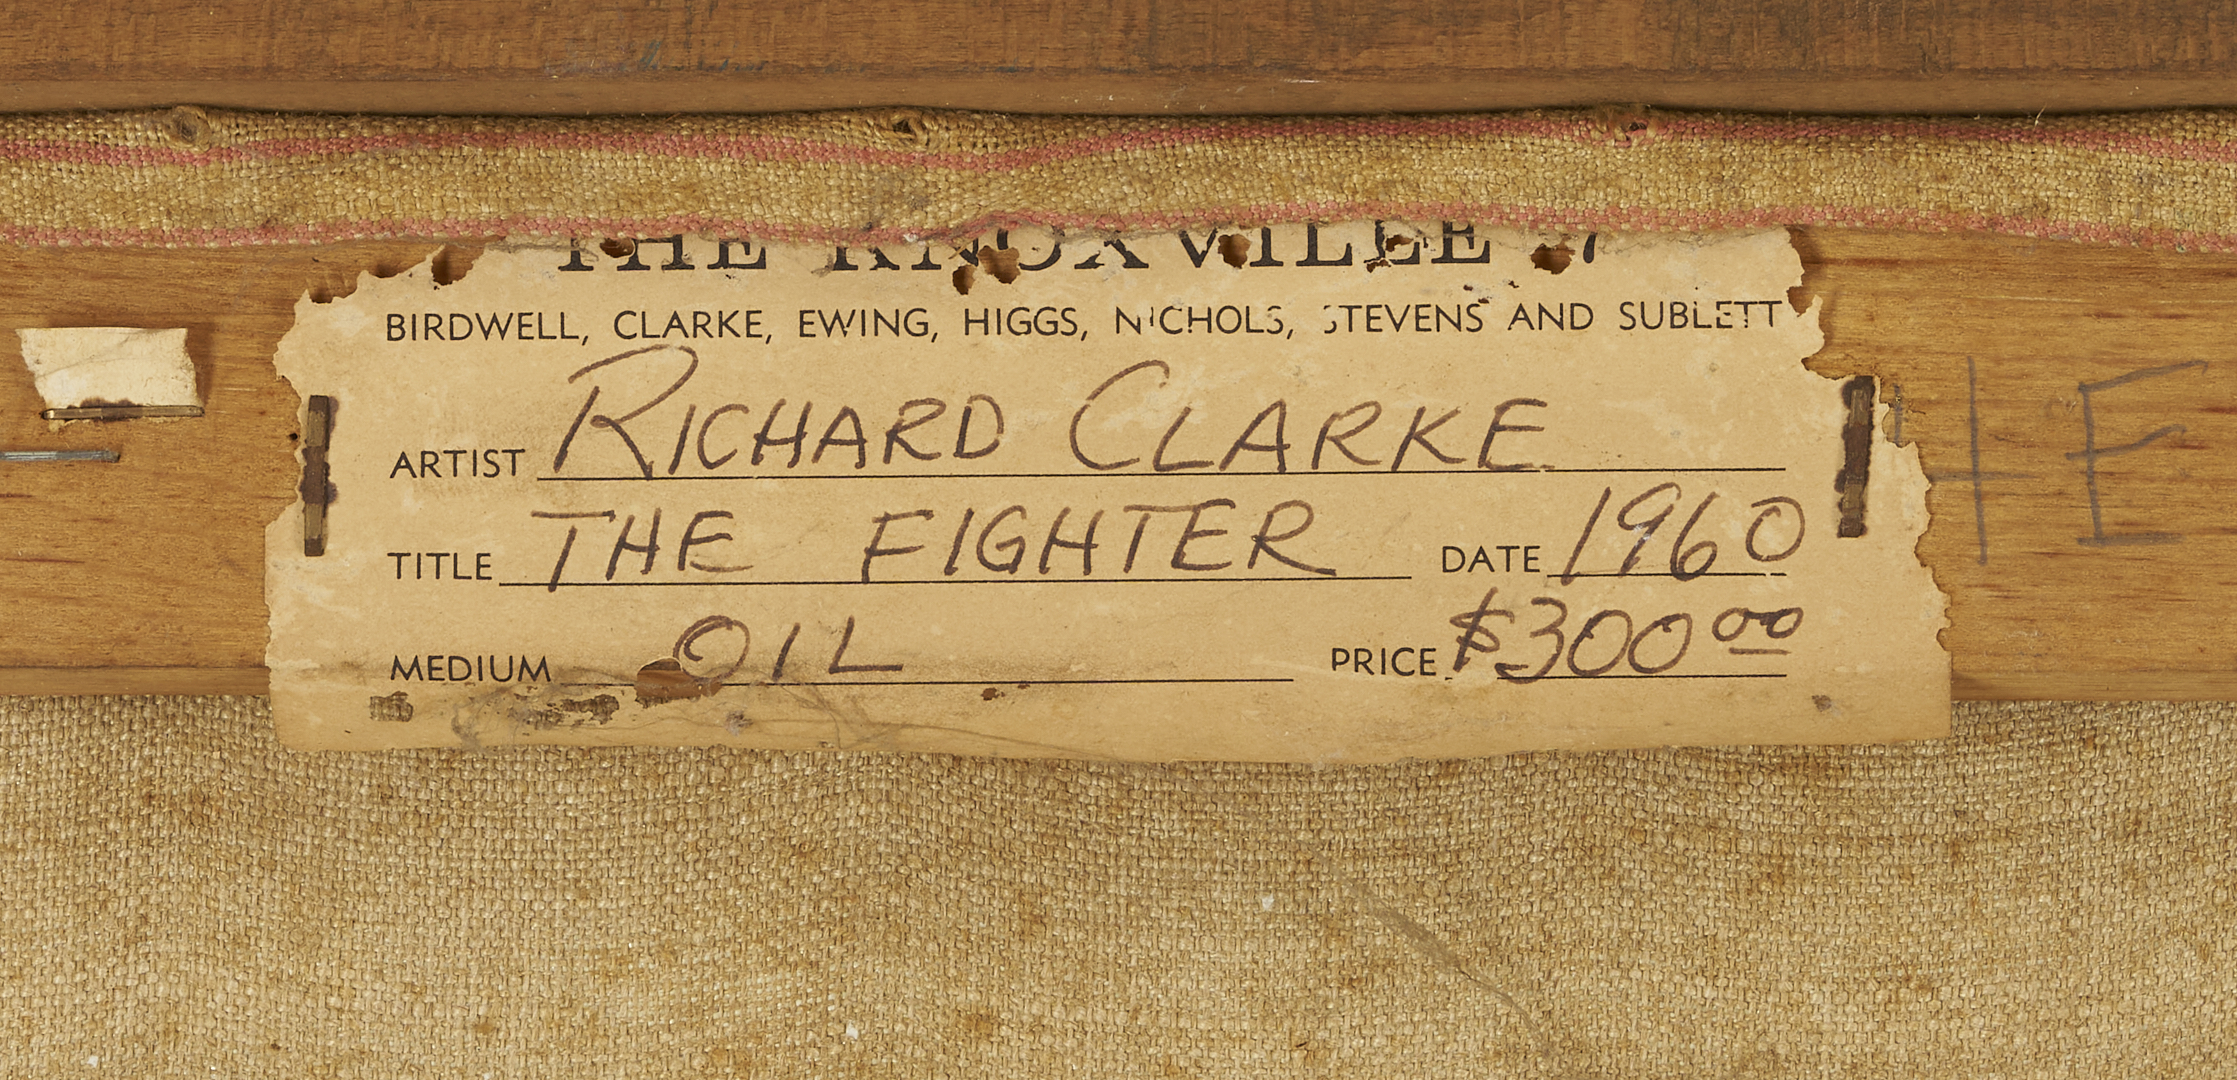 THE KNOXVILLE 7
BIRDWELL, CLARKE, EWING, HIGGS, NICHOLS, STEVENS AND SUBLETT
ARTIST RICHARD CLARKE
TITLE THE FIGHTER DATE 1960
MEDIUM OIL PRICE $300.00
HE